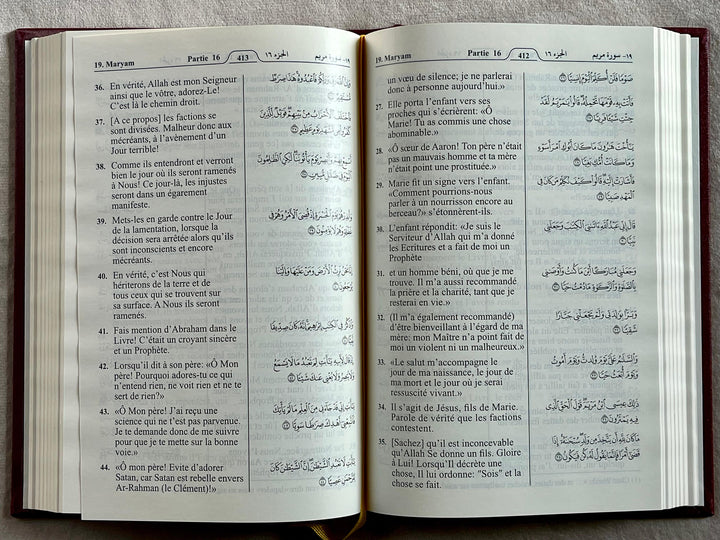 19. Maryam Partie 16 412 الجزء ١٦ ١٩- سورة مريم
un vœu de silence; je ne parlerai
donc à personne aujourd'hui.»
27. Elle porta l'enfant vers ses
proches qui s'écrièrent: «Ô
Marie! Tu as commis une chose
abominable.»
28. «Ô sœur de Aaron! Ton père n'était
pas un mauvais homme et ta mère
n'était point une prostituée.»
29. Marie fit un signe vers l'enfant.
«Comment pourrions-nous
parler à un nourrisson encore au
berceau?»» s'étonnèrent-ils.
30. L'enfant répondit: «Je suis le
Serviteur d'Allah qui m'a donné
les Ecritures et a fait de moi un
Prophète
31. et un homme béni, où que je me
trouve. Il m'a aussi recommandé
la prière et la charité, tant que je
resterai en vie.»
32. (Il m'a également recommandé)
d'être bienveillant à l'égard de ma
mère: mon Maître n'a point fait de
moi un violent ni un malheureux.»
33. «Le salut m'accompagne le
jour de ma naissance, le jour de
ma mort et le jour où je serai
ressuscité vivant.»
34. Il s'agit de Jésus, fils de Marie.
Parole de vérité que les factions
contestent.
35. [Sachez] qu'il est inconcevable
qu'Allah Se donne un fils. Gloire
à Lui! Lorsqu'Il décrète une
chose, Il lui ordonne: "Sois" et la
chose se fait.
صَوْمًا فَلَنْ أُكَلِّمَ ٱلْيَوْمَ إِنسِيًّا ٢٦
فَأَتَتْ بِهِۦ قَوْمَهَا تَحْمِلُهُۥ قَالُوا۟ يَٰمَرْيَمُ لَقَدْ
جِئْتِ شَيْـًٔا فَرِيًّا ٢٧
يَٰٓأُخْتَ هَٰرُونَ مَا كَانَ أَبُوكِ ٱمْرَأَ سَوْءٍ
وَمَا كَانَتْ أُمُّكِ بَغِيًّا ٢٨
فَأَشَارَتْ إِلَيْهِ قَالُوا۟ كَيْفَ نُكَلِّمُ مَن كَانَ فِى
ٱلْمَهْدِ صَبِيًّا ٢٩
قَالَ إِنِّى عَبْدُ ٱللَّهِ ءَاتَىٰنِىَ ٱلْكِتَٰبَ وَجَعَلَنِى
نَبِيًّا ٣٠
وَجَعَلَنِى مُبَارَكًا أَيْنَ مَا كُنتُ وَأَوْصَٰنِى
بِٱلصَّلَوٰةِ وَٱلزَّكَوٰةِ مَا دُمْتُ حَيًّا ٣١
وَبَرًّۢا بِوَٰلِدَتِى وَلَمْ يَجْعَلْنِى جَبَّارًا
شَقِيًّا ٣٢
وَٱلسَّلَٰمُ عَلَىَّ يَوْمَ وُلِدتُّ وَيَوْمَ أَمُوتُ
وَيَوْمَ أُبْعَثُ حَيًّا ٣٣
ذَٰلِكَ عِيسَى ٱبْنُ مَرْيَمَ قَوْلَ ٱلْحَقِّ ٱلَّذِى
فِيهِ يَمْتَرُونَ ٣٤
مَا كَانَ لِلَّهِ أَن يَتَّخِذَ مِن وَلَدٍ سُبْحَٰنَهُۥٓ إِذَا
قَضَىٰٓ أَمْرًا فَإِنَّمَا يَقُولُ لَهُۥ كُن فَيَكُونُ ٣٥
19. Maryam Partie 16 413 الجزء ١٦ ١٩- سورة مريم
36. En vérité, Allah est mon Seigneur
ainsi que le vôtre, adorez-Le!
C'est là le chemin droit.
37. [A ce propos] les factions se
sont divisées. Malheur donc aux
mécréants, à l'avènement d'un
Jour terrible!
38. Comme ils entendront et verront
bien le jour où ils seront ramenés
à Nous! Ce jour-là, les injustes
seront dans un égarement
manifeste.
39. Mets-les en garde contre le Jour
de la lamentation, lorsque la
décision sera arrêtée alors qu'ils
sont inconscients et encore
mécréants.
40. En vérité, c'est Nous qui
hériterons de la terre et de
tous ceux qui se trouvent sur
sa surface. A Nous ils seront
ramenés.
41. Fais mention d'Abraham dans le
Livre! C'était un croyant sincère
et un Prophète.
42. Lorsqu'il dit à son père: «Ô Mon
père! Pourquoi adores-tu ce qui
n'entend rien, ne voit rien et ne te
sert de rien?»
43. «Ô Mon père! J'ai reçu une
science qui ne t'est pas parvenue.
Je te demande donc de me suivre
pour que je te mette sur la bonne
voie.»
44. «Ô mon père! Evite d'adorer
Satan, car Satan est rebelle envers
Ar-Rahman (le Clément)!»